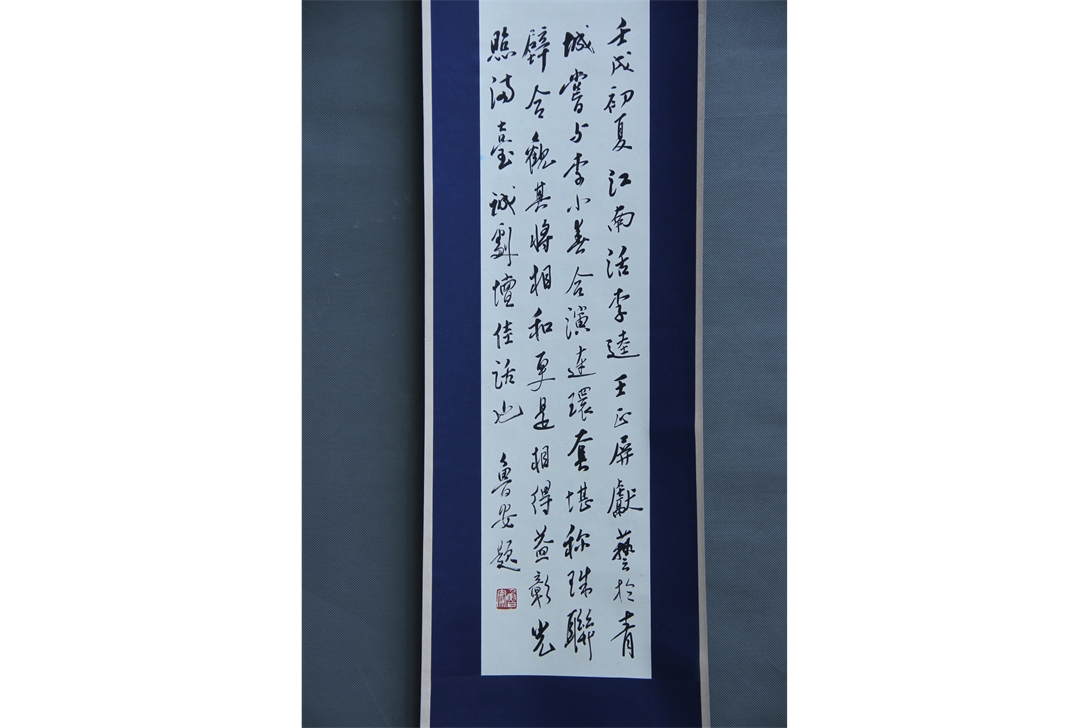 壬戌初夏江南活李逵王正屏獻藝於青
城嘗与李小春合演連環套堪称珠聯
璧合觀其將相和更是相得益彰光
照满臺誠劇壇佳話也
魯安題